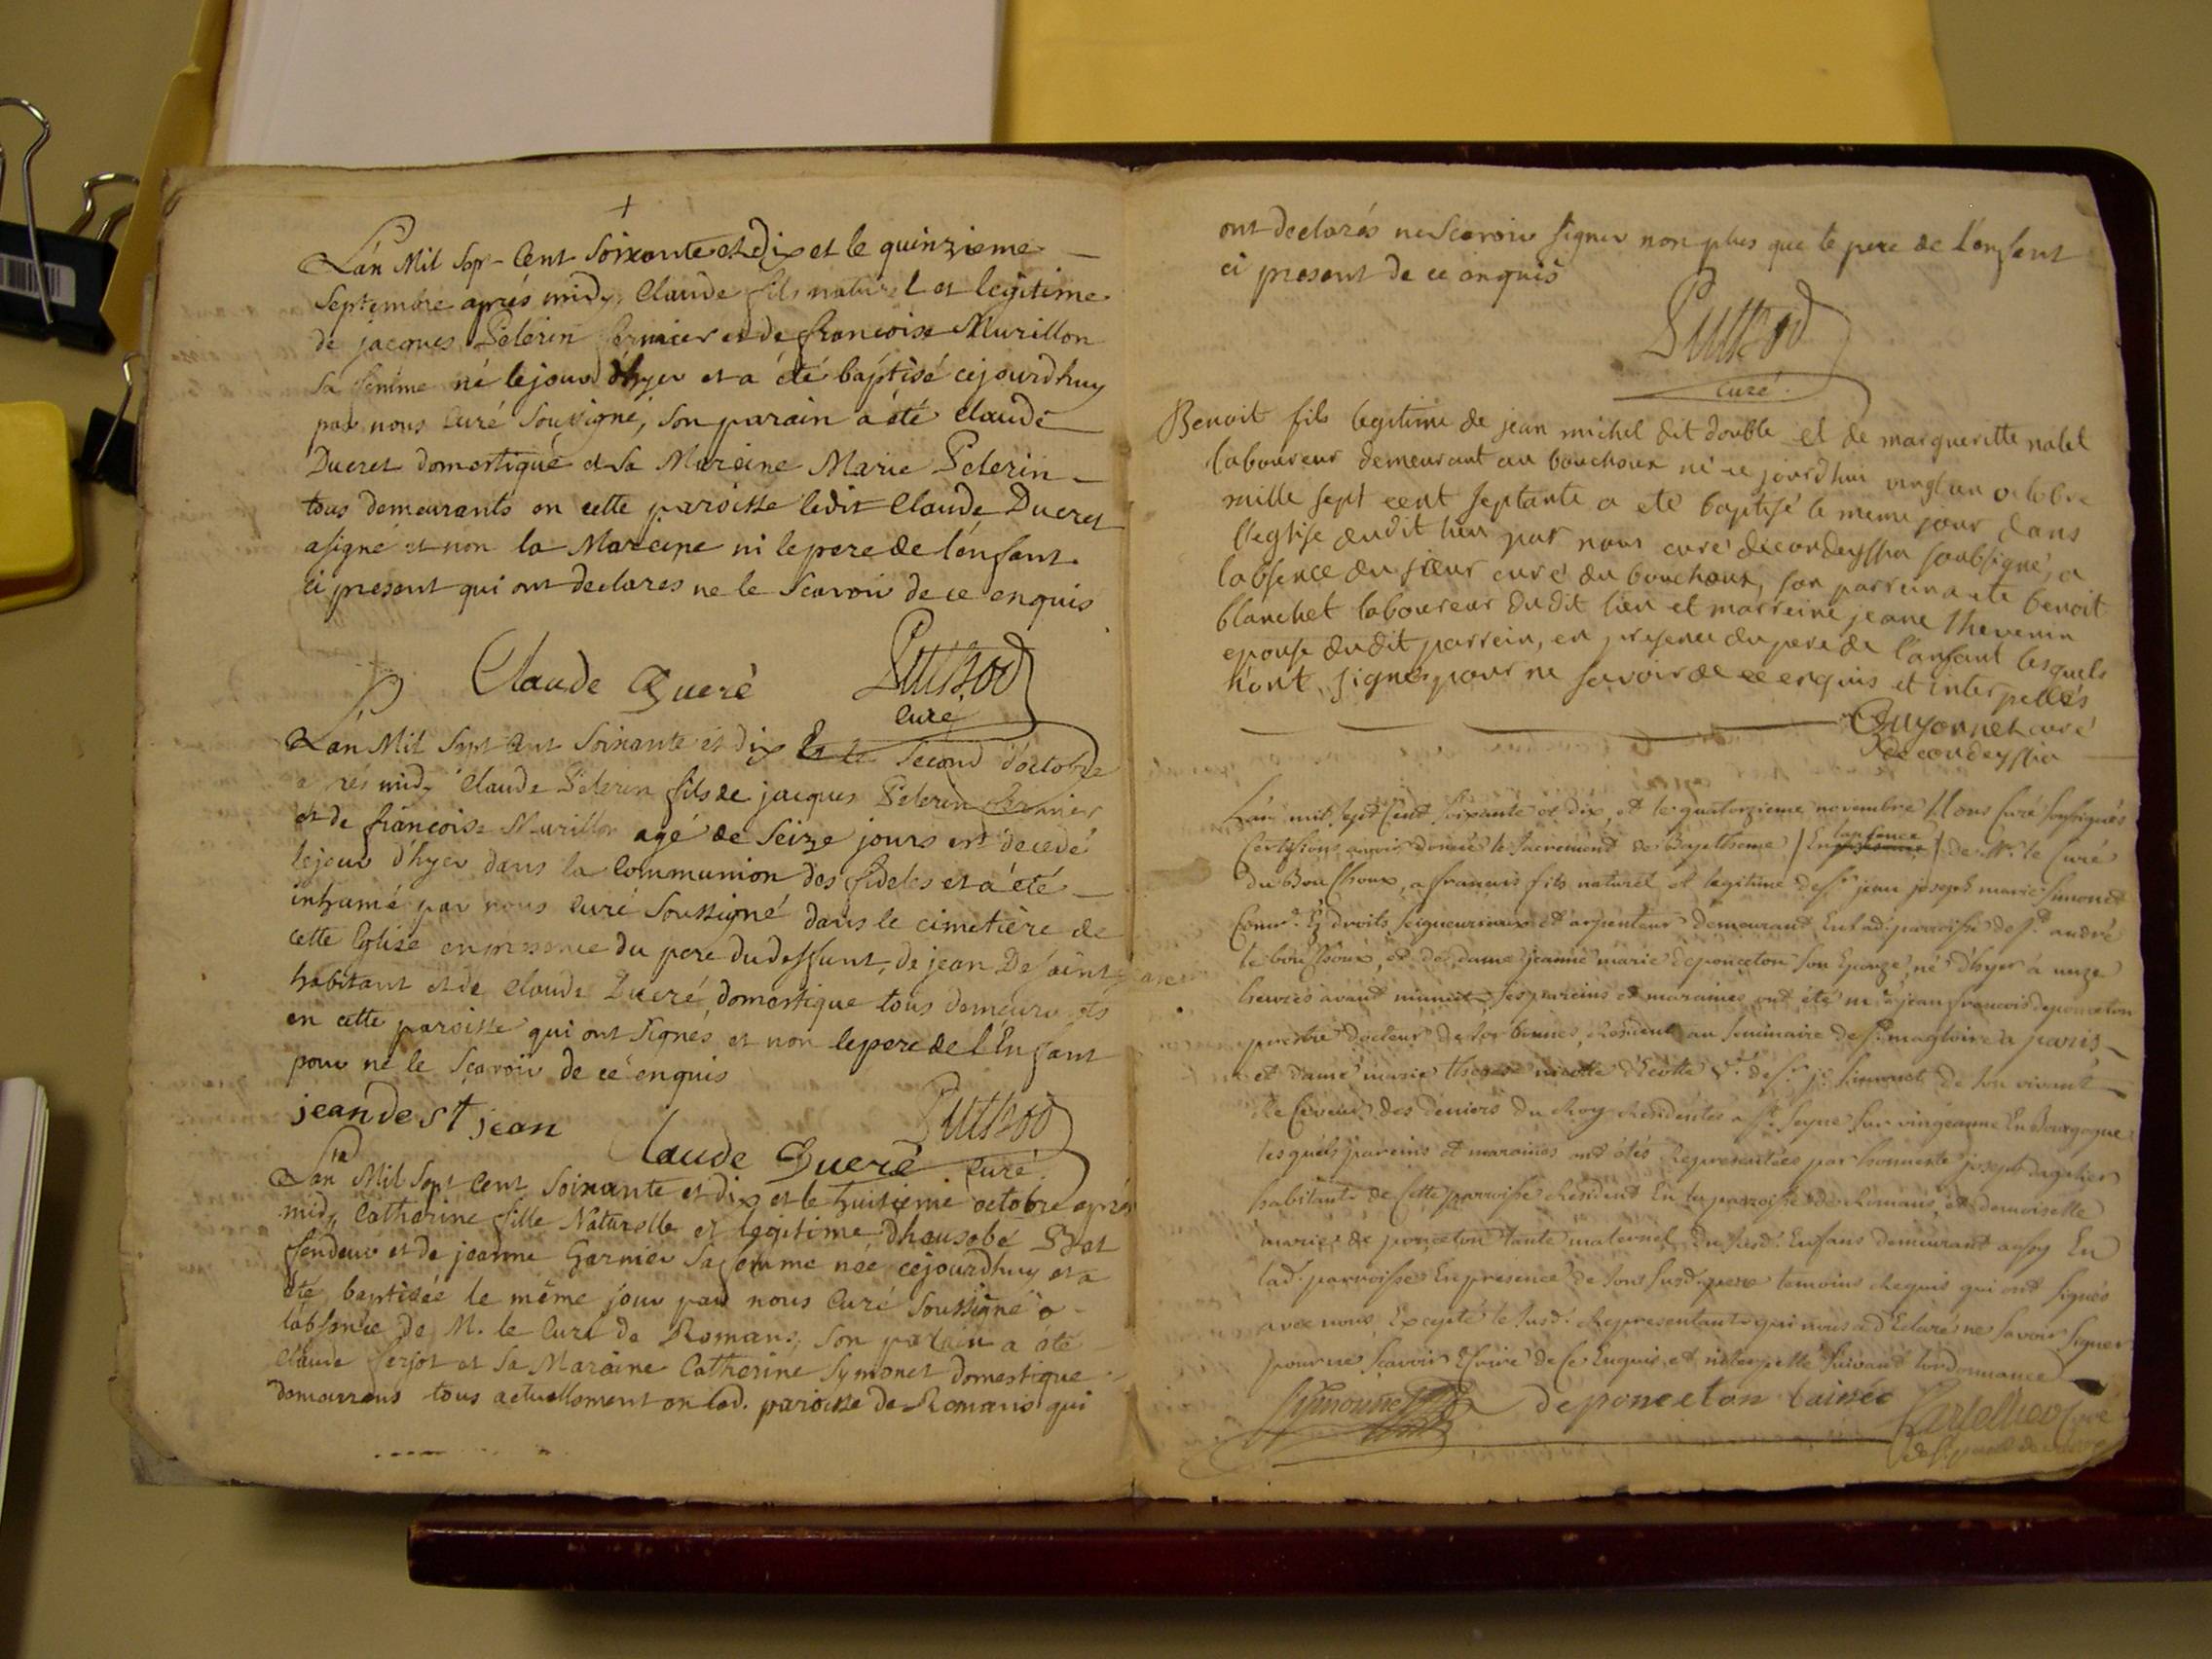 L'an Mil Sept-Cent Soixante et Dix et le quinzieme
Septembre aprés midy, Claude fils naturel et legitime
de jacques Pelerin fermier et de françoise Murillon
sa femme né le jour d'hyer et a été baptisé cejourdhuy
par nous Curé Soussigné, Son parain a été Claude
Ducret domestique et Sa Maraine Marie Pelerin
tous demeurants en cette paroisse ledit Claude Ducret
a signé et non la Maraine ni le pere de l'enfant
ci present qui ont declares ne le Scavoir de ce enquis
Claude Queré
Curé
L'an Mil Sept Cent Soixante et dix Second d'octobre
a rés midy Claude Pelerin fils de jacques Pelerin fermier
et de francoise Murillon agé de Seize jours est decedé
le jour d'hyer dans la Communion des fideles et a été
inhumé par nous Curé Soussigné dans le cimetière de
cette Eglise en presence du pere du deffunt, de jean De Saint jean
habitant et de Claude Ducré, domestique tous demeurants
en cette paroisse qui ont Signés, et non le pere de l'Enfant
pour ne le Sçavoir de ce enquis
jean de st jean
Claude Queré Curé
L'an Mil Sept Cent Soixante et dix et le huitieme octobre aprés
midy Catherine fille Naturelle et legitime
fendeur et de jeanne Garnier Sa femme née cejourdhuy et a
été baptisée le même jour par nous Curé Soussigné a
l'absence de M. le Curé de Romans, Son parain a été
Claude ferjot et Sa Maraine Catherine Symonet domestique
demeurans tous actuellement en lad. paroisse de Romans qui
ont declarés ne Scavoir Signer non plus que le pere de L'enfant
ci present de ce enquis
curé
Benoit fils legitime de jean michel dit double et de margueritte nalet
laboureur demeurant au bouchoux né ce jourdhui vingt un octobre
mille sept cent septante a eté baptisé le meme jour dans
l'eglise dudit lieu par nous curé de condeyssia soubsigné, a
l'absence du sieur curé du bouchoux, son parrein a ete benoit
blanchet laboureur dudit lieu et marreine jeane thevenin
epouse dudit parrein, en presence du pere de l'anfant lesquels
n'ont signés pour ne scavoir de ce enquis et interpellés
Guyonnet curé
de condeyssia
L'an mil sept Cent soixante et dix, et le quatorzieme novembre Nous Curé soussignés
Certifions avoir donné le Sacrement de Baptheme / En l'absence / de Mr. le Curé
du Bouchoux, a francois fils naturel et legitime de Sr. jean joseph marie Simonet
Comre. Es droits seigneuriaux et arpenteur demeurant En lad. paroisse de St. andré
le bouchoux, et de dame jeanne marie deponceton son Epouze, né d'hyer à unze
heures avant minuit, ses pareins et maraines ont été mre. jean francois deponceton
prestre docteur de sorbonne, Resident au seminaire de St. magloire a paris
et dame marie therese de Sr. jh. Simonet de son vivant
Receveur des deniers du Roy Residentes a St. Seyne sur vingeanne En Bourgogne
lesquels pareins et maraines ont étés Representées par honneste joseph
habitant de Cette parroisse Resident En la parroisse de Romans, et demoiselle
marie de ponceton tante maternel du susd. Enfans demeurant aussy En
lad. parroisse En presence de sont susd. pere temoins Requis qui ont signés
avec nous, Excepté le susd. Representant qui nous a dEclaré ne savoir signer
pour ne scavoir Ecrire de Ce Enquis, et interpellé suivant l'ordonnance
Symonnet deponceton lainée